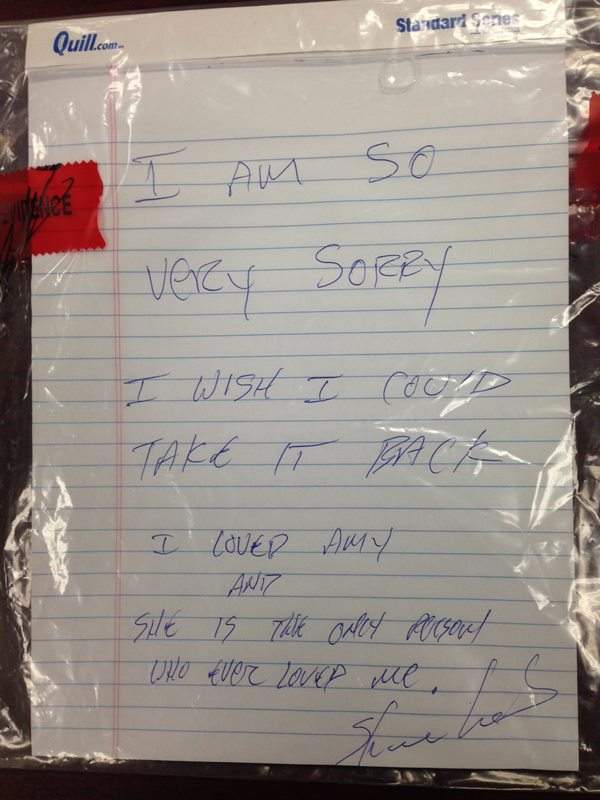 Quill.com
Standard Series
EVIDENCE
I AM SO
VERY SORRY
I WISH I COULD
TAKE IT BACK
I LOVED AMY
AND
SHE IS THE ONLY PERSON
WHO EVER LOVED ME.